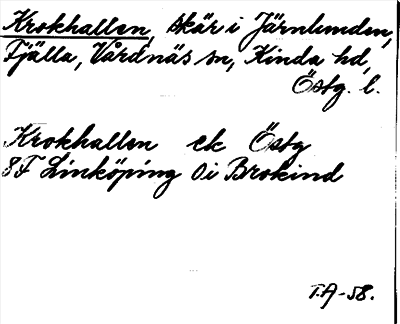 Krokhallen, skär i Järnlunden,
Fjälla, Vårdnäs sn, Kinda hd,
Östg. l.
Krokhallen ek Östg
8F Linköping Öi Brokind
T.A-58.